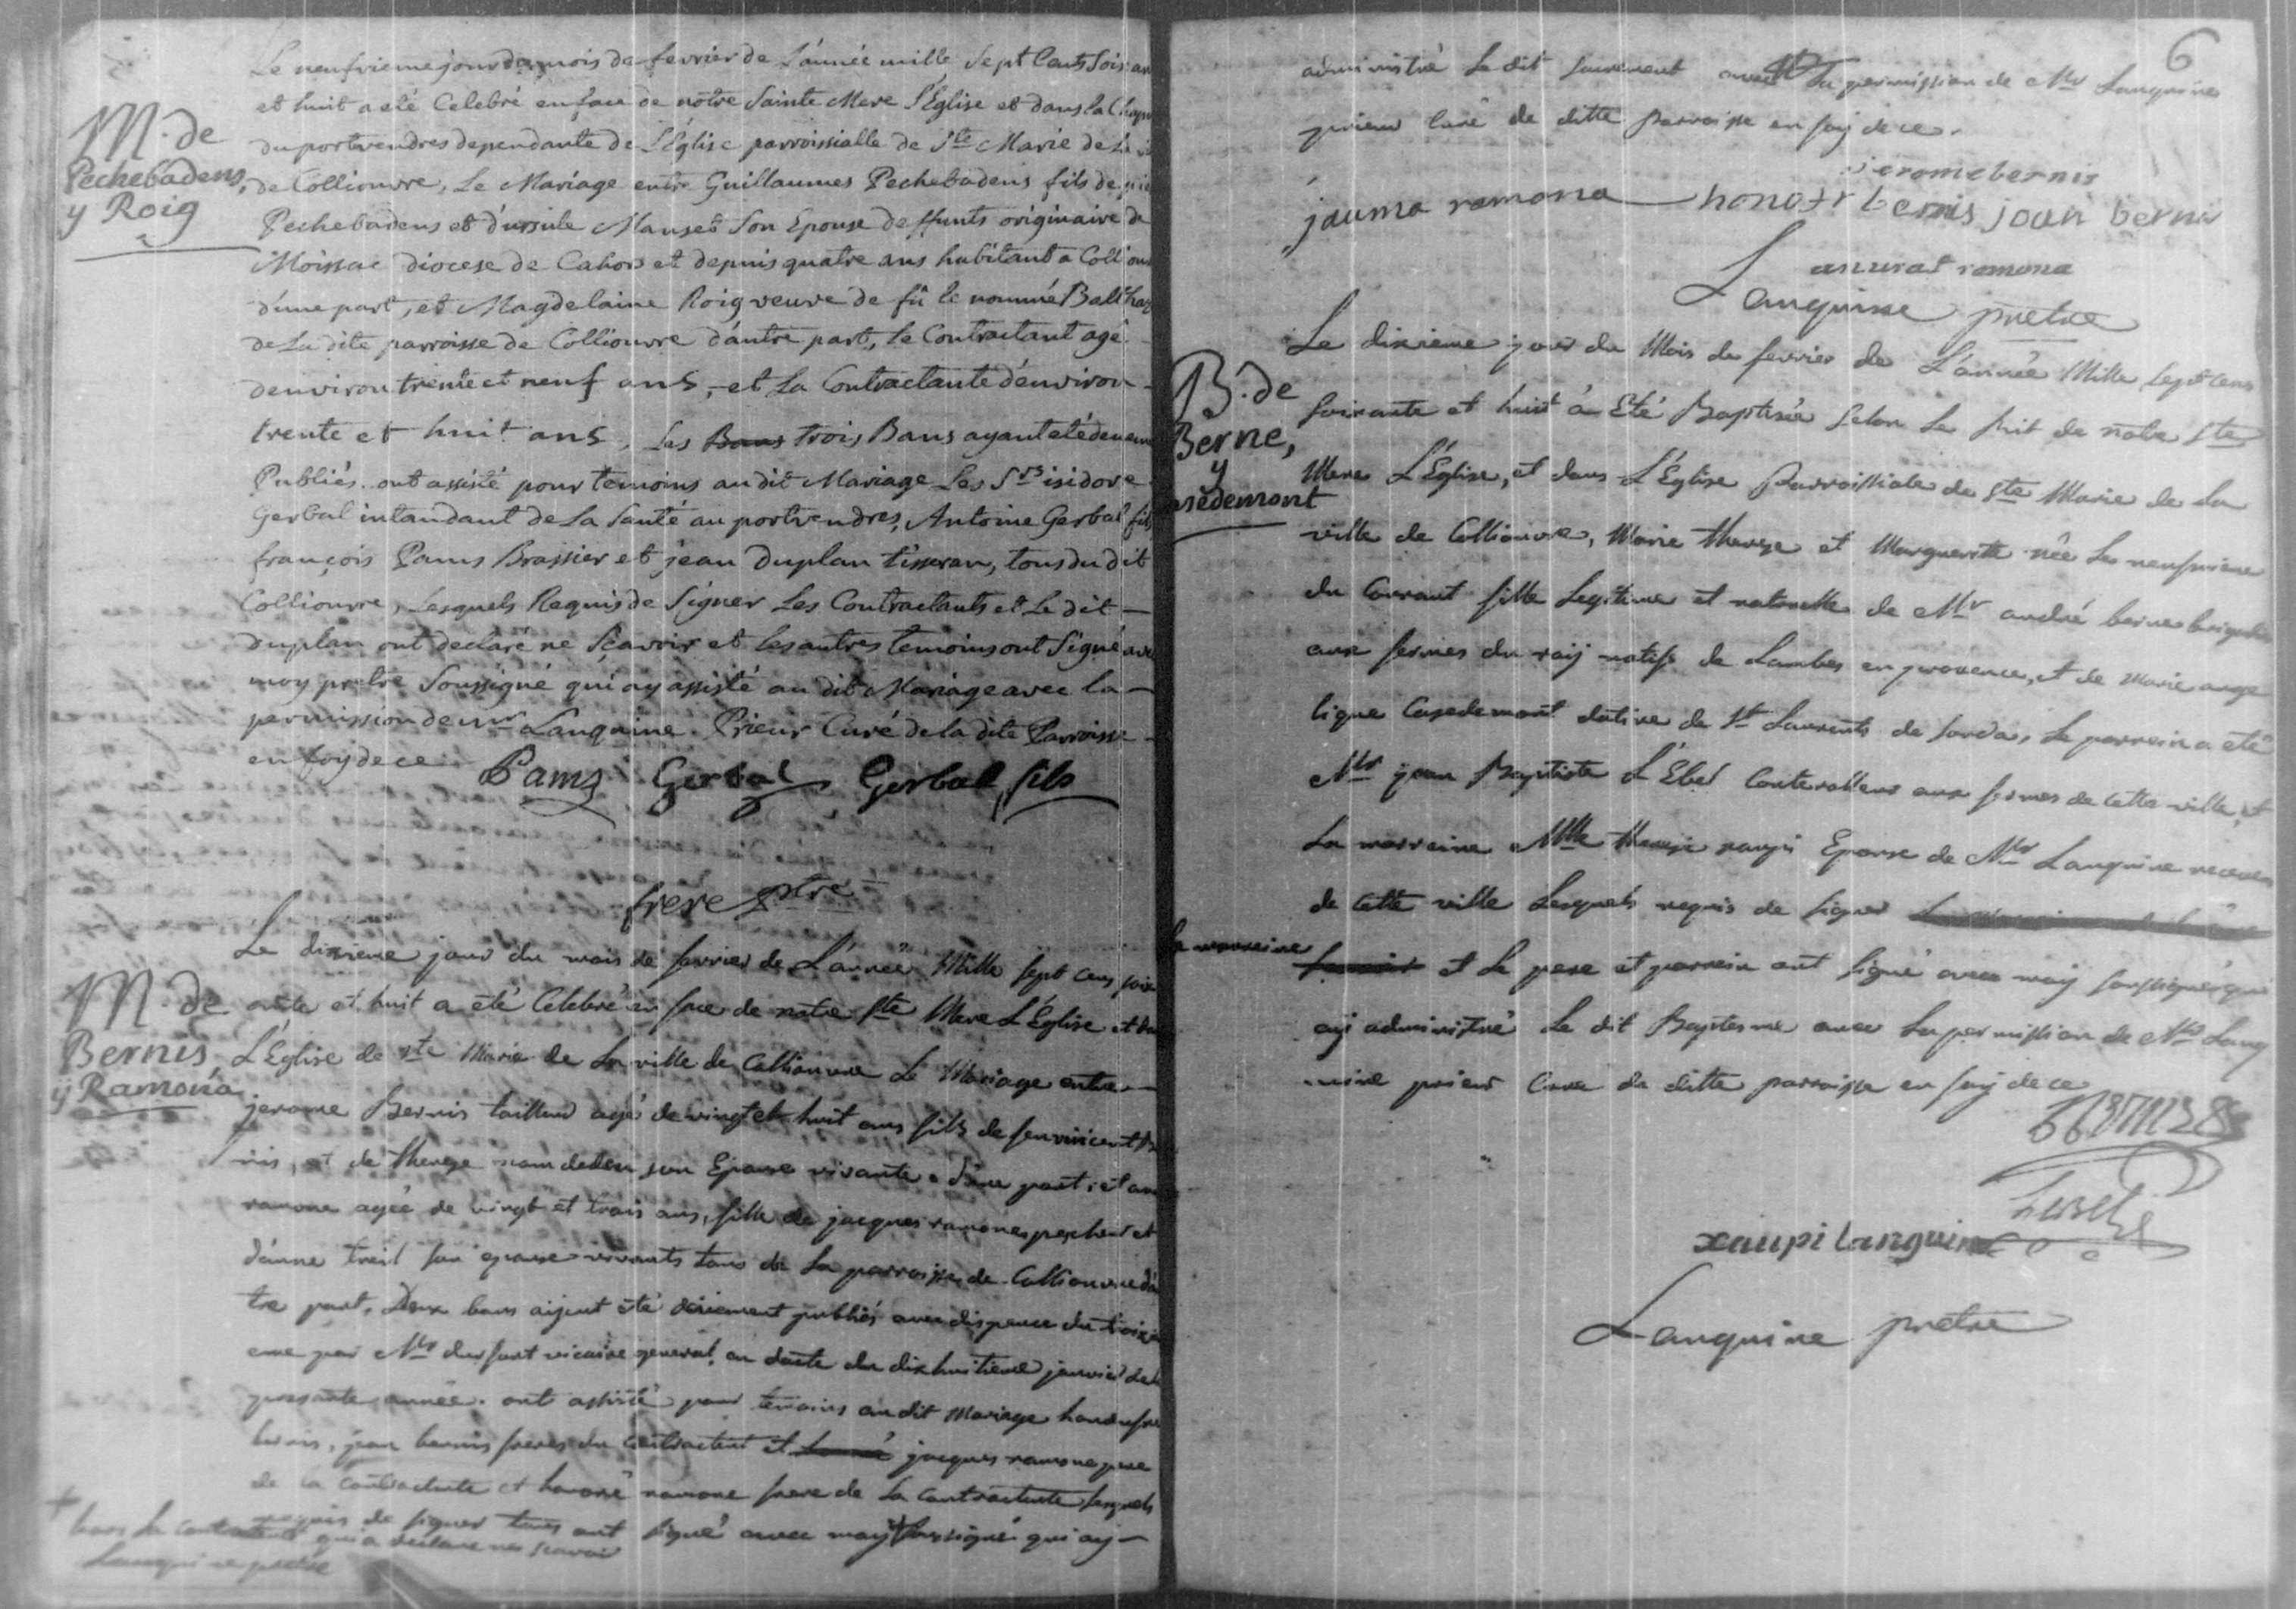 Le neufvieme jour du mois de fevrier de L'année mille Sept Cents Soixan
et huit a eté Celebré en face de nôtre Sainte Mere l'Église et dans la Chap
du portvendres dependante de l'Église parroissialle de Ste Marie de La
M. de
Pechebadens,
y Roig
de Colliouvre, Le Mariage entre Guillaumes Pechebadens fils de
Pechebadens et d'ursule Manset Son Epouse deffunts originaire de
Moissac diocese de Cahors et depuis quatre ans habitant a Colliou
d'une part, et Magdelaine Roig veuve de fû le nommé Balthaz
de La dite parroisse de Colliouvre d'autre part, le Contractant agé
d'environ trente et neuf ans, et La Contractante d'environ
trente et huit ans, Les Bans trois Bans ayant eté deuem
Publiés. ont assisté pour temoins au dit Mariage Les Srs isidore
Gerbal intandant de La Santé au portvendres, Antoine Gerbal fils
françois Pams Brassier et jean Duplan tisseran, tous du dit
Colliouvre, Lesquels Requis de Signer Les Contractants et Le dit
duplan ont declaré ne Sçavoir et les autres temoins ont Signé avec
moy pretre Soussigné qui ay assisté au dit Mariage avec la
permission de mr Lanquine Prieur Curé de la dite Parroisse
en foy de ce
Pams Gerbal Gerbal fils
frere ptre
Le dixieme jour du mois de fevrier de L'année Mille sept cens soix
M. de
Bernis
y Ramona
ante et huit a eté Celebré en face de notre Ste Mere L'Église et dans
L'Église de Ste Marie de La ville de Colliouvre Le Mariage entre
jerome Bernis tailleur agé de vingt et huit ans fils de feu vincent Ber
nis, et de Therese son Epouse vivante d'une part, et
ramone agée de vingt et trois ans, fille de jacques ramone pescheur et
d'anne treil son epouse vivants tous de La parroisse de Colliouvre d'au
tre part, Deux bans aijent eté deüement publiés avec dispence du troisi
eme par Mr durfort vicaire general, en datte du dixhuitieme janvier de la
presante année. ont assisté pour temoins au dit Mariage
bernis, jean bernis freres du contractant et jacques ramone pere
de la contractante et honoré ramone frere de La Contractante Lesquels
requis de signer tous ont signé avec moy soussigné qui ay
+ hors La Contractante qui a declaré ne scavoir
Lanquine pretre
6
administré Le dit sacrement avec La permission de Mr Lanquine
prieur Curé de ditte parroisse en foy de ce.
jerome bernis
jauma ramona honoré bernis joan bernis
anurat ramona
Lanquine pretre
B. de
Berne,
y
asedemont
Le dixieme jour du Mois de fevrier de L'année Mille sept cens
soixante et huit à Eté Baptisée selon Le Rit de notre Ste
Mere L'Église, et dans L'Église Parroissiale de Ste Marie de La
ville de Colliouvre, Marie Therese et Marguerite née Le neufvieme
du Courant fille Legitime et naturelle de Mr andré berne brigadi
aux fermes du roij natif de Lambes en provence, et de Marie ange
lique Casedemont native de St Laurents de Cerda, Le parrein a eté
Mr jean Baptiste L'Ebel Conterolleur aux fermes de cette ville, et
La marreine Mlle Therese xaupi Epouse de Mr Lanquine receveur
de cette ville Lesquels requis de signer
La marreine et Le pere et parrein ont signé avec moy soussigné qui
aij administré Le dit Baptesme avec La permission de Mr Lanq
uine prieur Curé de ditte parroisse en foij de ce
Lebel
xaupi Lanquine
Lanquine pretre